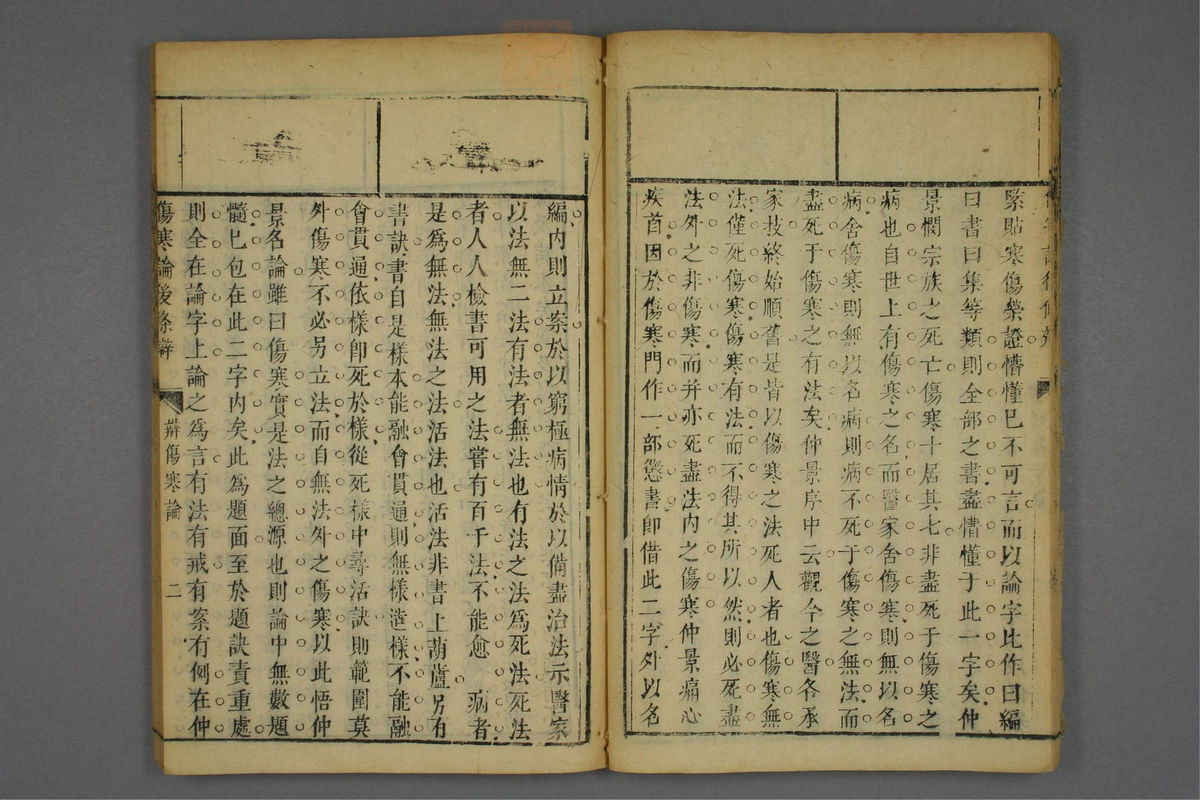 緊貼寒傷榮證懵懂已不可言而以論字比作曰編
曰書曰集等類則全部之書盡懵懂于此一字矣仲
景憫宗族之死亡傷寒十居其七非盡死于傷寒之
病也自世上有傷寒之名而醫家舍傷寒則無以名
病舍傷寒則無以名病則病不死于傷寒之無法而
盡死于傷寒之有法矣仲景序中云觀今之醫各承
家技終始順舊是皆以傷寒之法死人者也傷寒無
法僅死傷寒傷寒有法而不得其所以然則必死盡
法外之非傷寒而并亦死盡法內之傷寒仲景痛心
疾首因於傷寒門作一部懲書即借此二字外以名
編內則立案於以窮極病情於以備盡治法示醫家
以法無二法有法者無法也有法之法為死法死法
者人人檢書可用之法嘗有百千法不能愈 病者
是為無法無法之法活法也活法非書上葫蘆另有
書訣書自是樣本能融會貫通則無樣造樣不能融
會貫通依樣即死於樣從死樣中尋活訣則範圍莫
外傷寒不必另立法而自無法外之傷寒以此悟仲
景名論雖曰傷寒實是法之總源也則論中無數題
髓已包在此二字內矣此為題面至於題訣責重處
則全在論字上論之為言有法有戒有案有例在仲
傷寒論後條辯
辯傷寒論
二